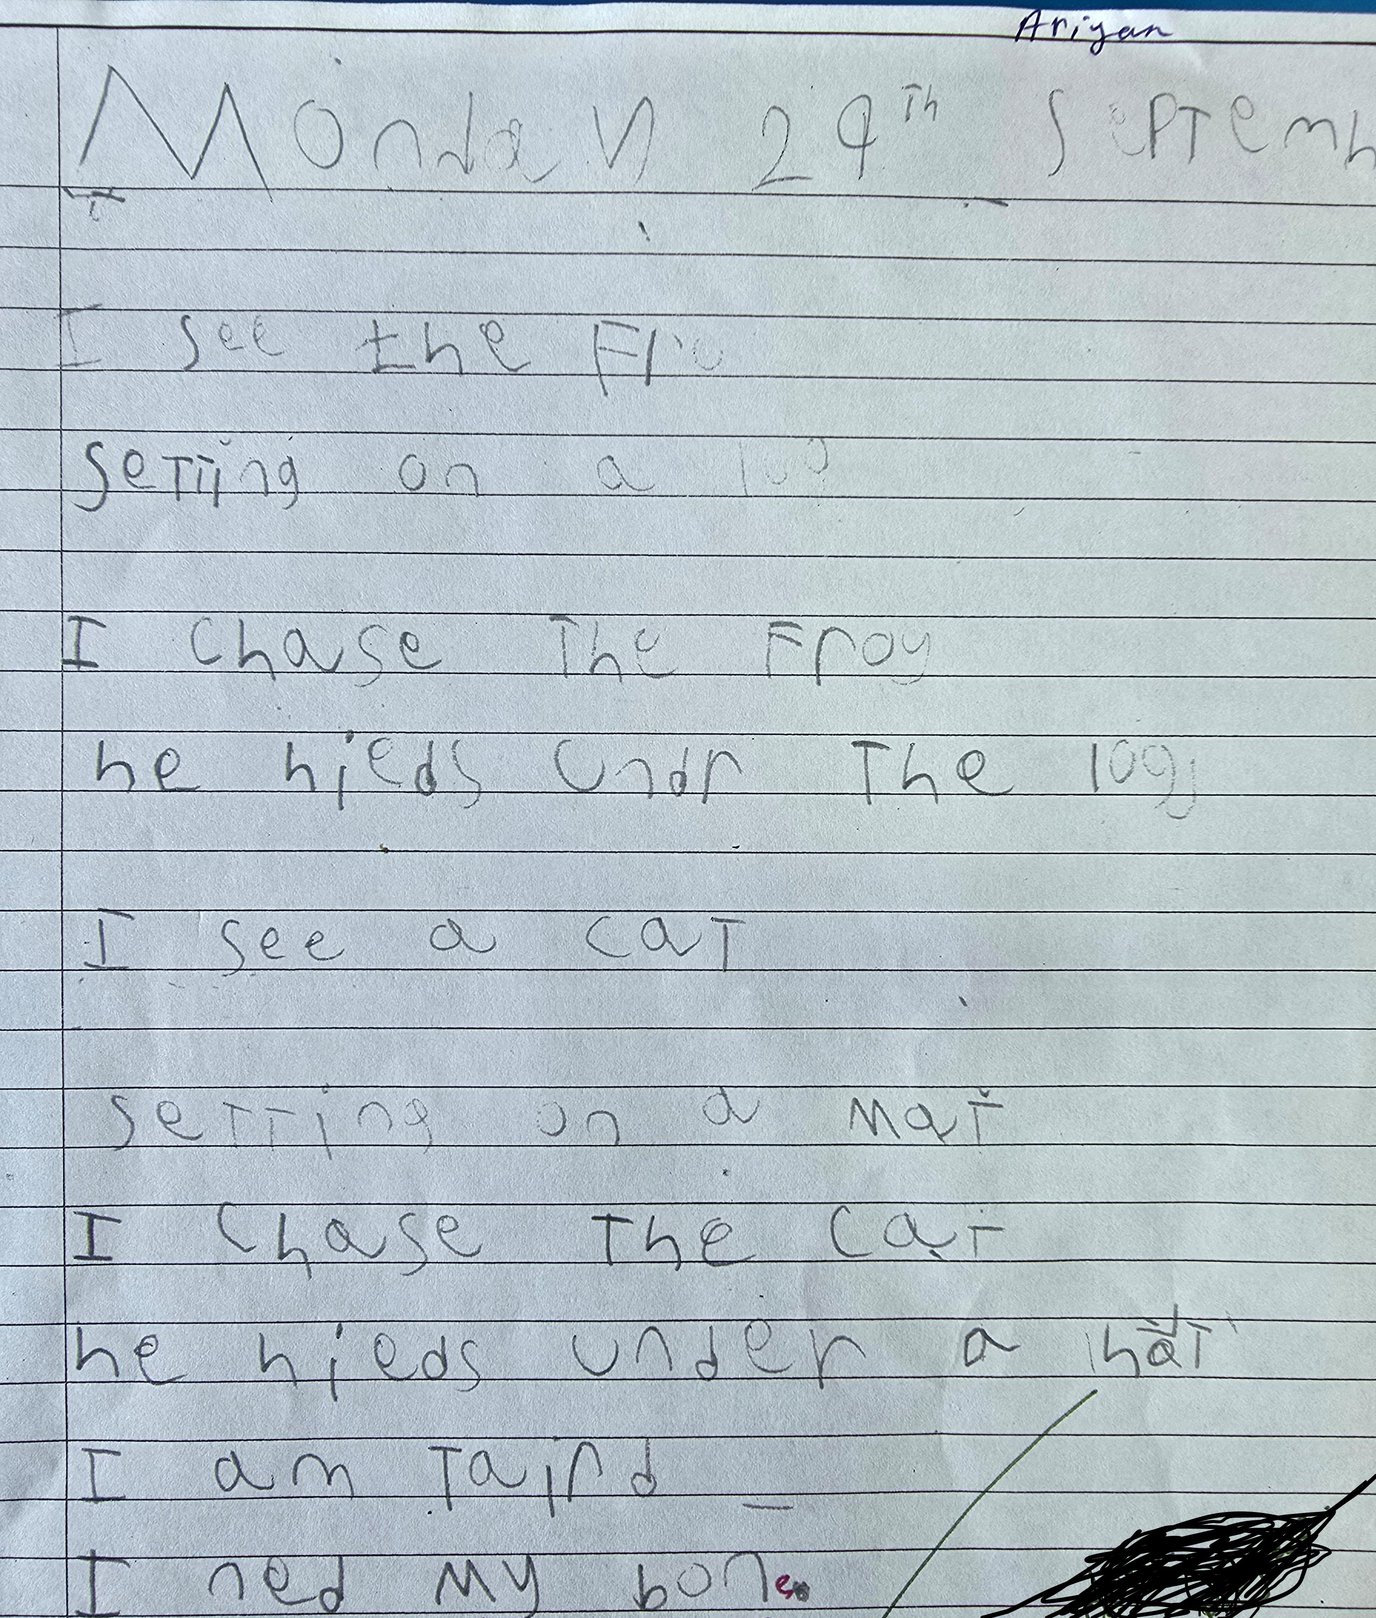 Ariyan
Monday 29Th Septemb
I see the Fro
seTTing on a log
I chase The Frog
he hieds undr The log
I see a caT
seTTing on a MaT
I chase The caT
he hieds under a haT
I am Taird
I ned My bone